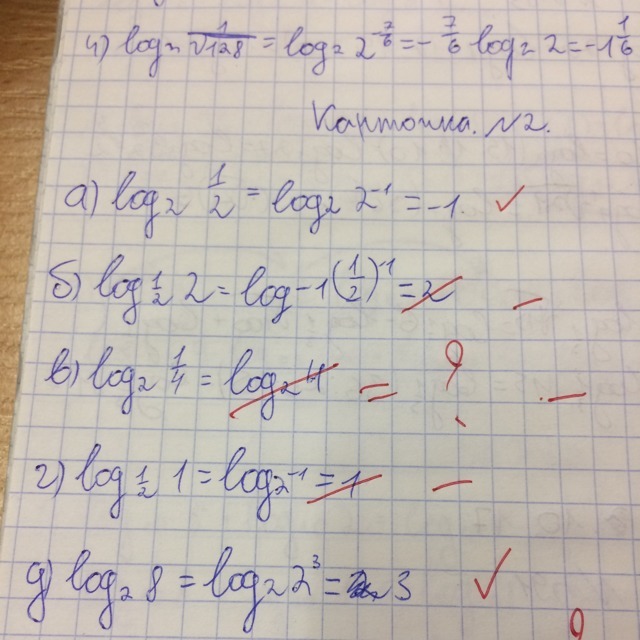 ч) log₂ 1/√128 = log₂ 2^(-7/6) = -7/6 log₂ 2 = -1 1/6
Карточка. №2.
а) log₂ 1/2 = log₂ 2⁻¹ = -1. ✓
б) log_(1/2) 2 = log -1 (1/2)⁻¹ = 2 —
в) log₂ 1/4 = log₂ 4 = ? —
г) log_(1/2) 1 = log₂⁻¹ = 1 —
д) log₂ 8 = log₂ 2³ = 3 ✓